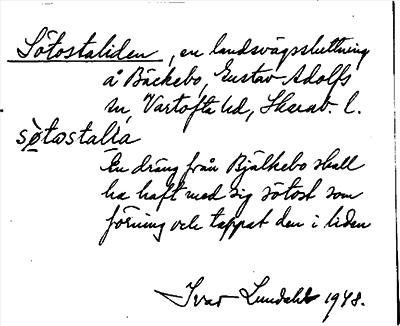 Sötostaliden, en landsvägssluttning
å Bäckebo, Gustav Adolfs
sn, Vartofta hd, Skarab. l.
sø̀tωstalia
En dräng från Bjälkebo skall
ha haft med sig sötost som
förning och tappat den i liden
Ivar Lundahl 1948.